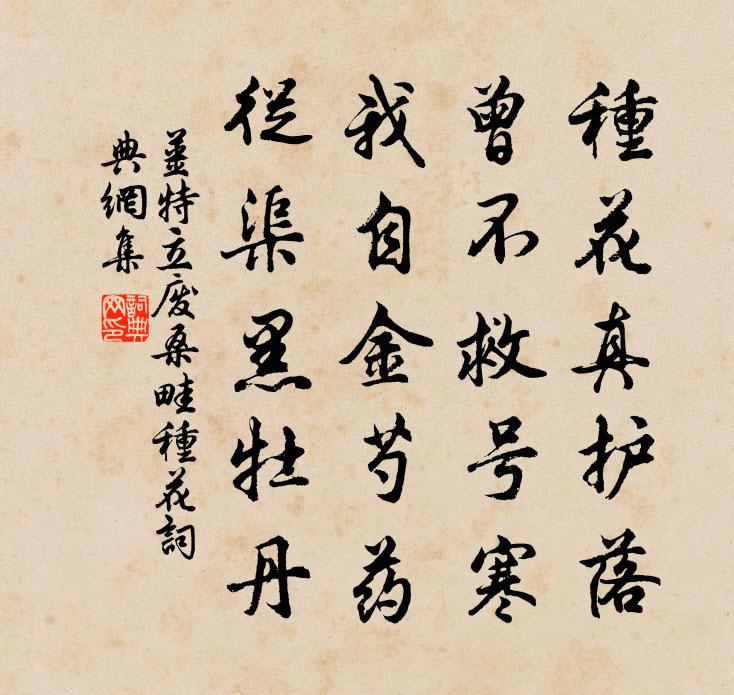 種花真护落
曾不救号寒
我自金芍药
從渠黑牡丹
姜特立廢桑畦種花詞
典網集
詞典網印